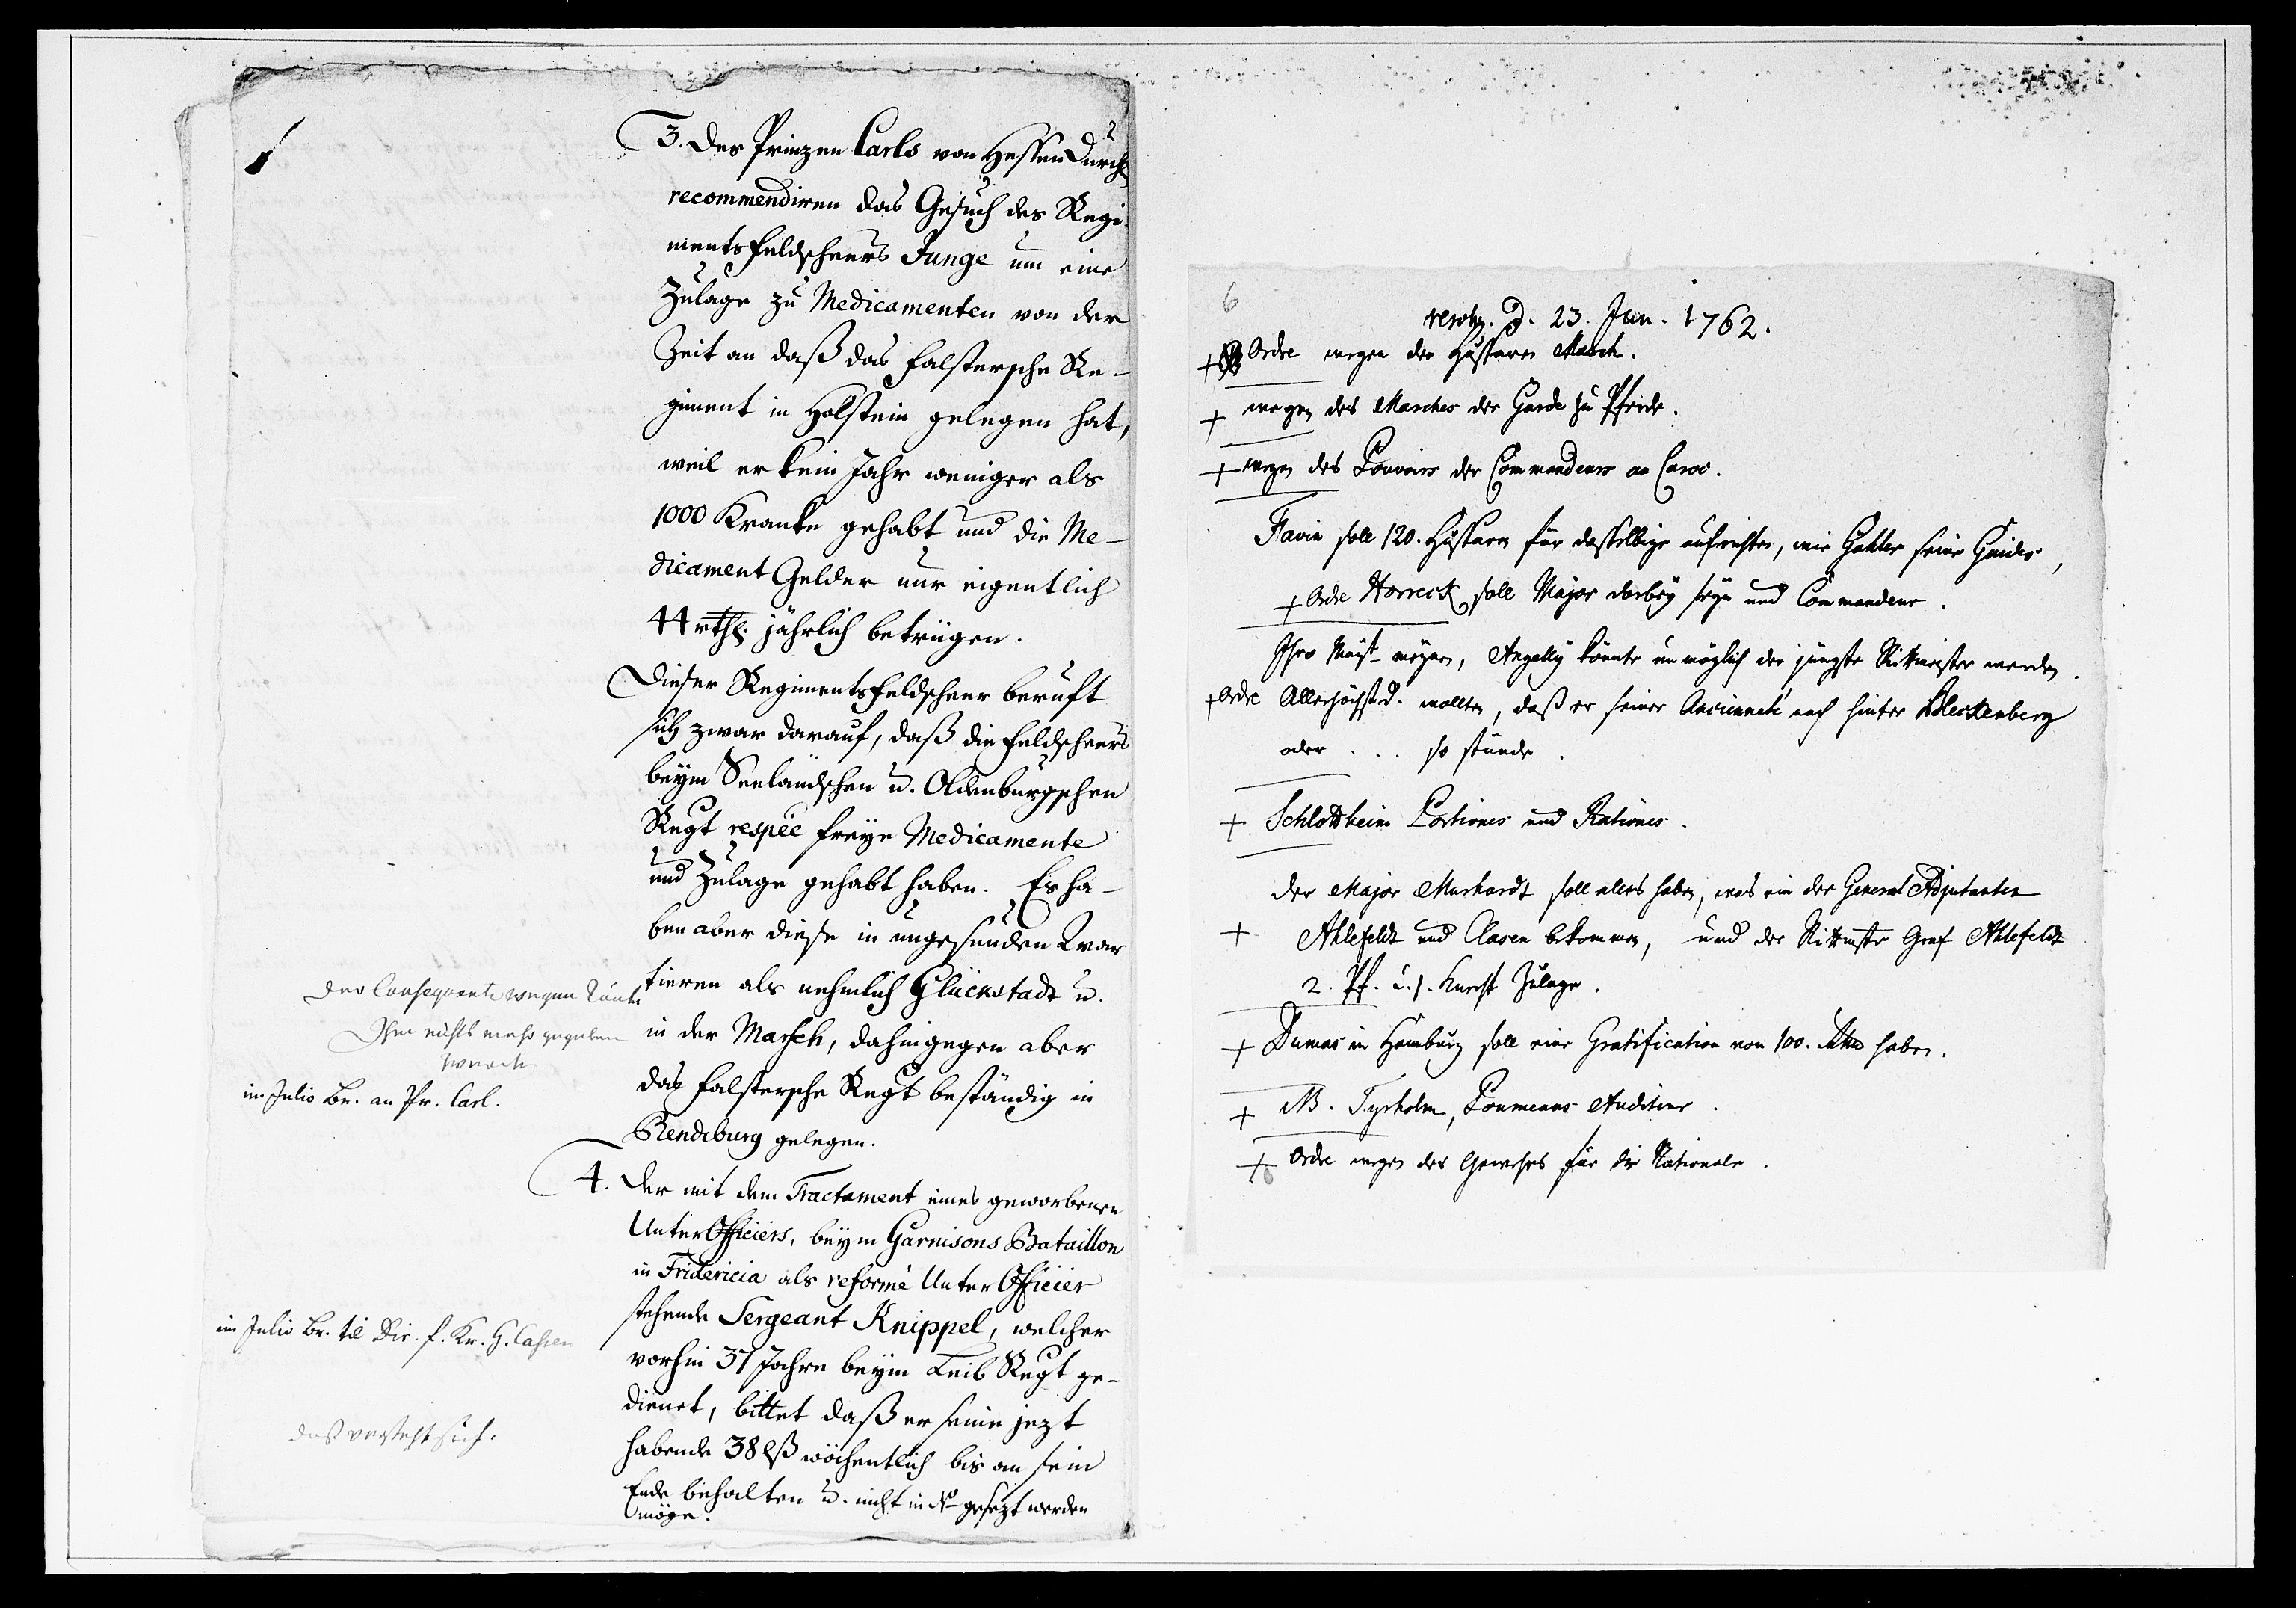 3. Des Prinzen Carls von Hessen Durchl
recommendiren das Gesuch des Regi
mentsfeldscheers Junge um eine
Zulage zu Medicamenten von der
Zeit an daß das Falstersche Re-
giment in Holstein gelegen hat,
weil er kein Jahr weniger als
1000 Kranke gehabt und die Me-
dicament Gelder nur eigentlich
44 rthl. jährlich betrügen.
Dieser Regimentsfeldscheer beruft
sich zwar darauf, daß die Feldscheers
beym Seeländschen u. Oldenburgschen
Regt respée freye Medicamente
und Zulage gehabt haben. Es ha-
ben aber diese in ungesunden Quar
tieren als nehmlich Glückstadt u.
in der Marsch, dahingegen aber
das Falstersche Regt beständig in
Rendsburg gelegen.
Der Consequentz wegen könte
Ihm nichts mehr gegeben
werden
im Julio Br. an Pr. Carl.
4. Der mit dem Tractament eines geworbenen
Unter Officiers, beym Garnisons Bataillon
in Fridericia als reformé Unter Officier
stehende Sergeant Knippel, welcher
vorhin 37 Jahre beym Leib Regt ge-
dienet, bittet daß er seine jezt
habende 38 lß wöchentlich bis an sein
Ende behalten u. nicht in No gesezt werden
möge.
im Julio Br. til Dir. f. Kr. H. Cassen
das versteht sich.
6
resolv. d. 23. Jun. 1762.
+ Ordre wegen der Hussaren March.
+ wegen des Marches der Garde zu Pferde.
+ wegen des Pouvoirs der Commandeurs en Caroo.
Favin soll 120. Hussaren für dasselbige aufrichten, wie Gahler seine Guides,
+ Ordre Horreck soll Major darbey seyn und Commandeur.
Ihro Mayst mögen, Angelly könnte unmöglich der jüngste Rittmeister werden.
+ Ordre Allerhöchst d. wollten, daß er seiner Ancienneté nach hinter Bleckenberg
oder ... so stünde.
+ Schlottheim Portiones und Rationes.
Der Major Murhardt soll alles haben, was ein der General Adjutanten
+ Ahlefeldt und Clasen bekommen, und der Rittmstr Graf Ahlefeldt
2. Pf. u. 1. Knecht Zulage.
+ Dumas in Hamburg soll eine Gratification von 100. haben.
+ NB. Tyrholm, Poumeaus Auditeur.
+ Ordre wegen des Gewehrs für die Nationale.